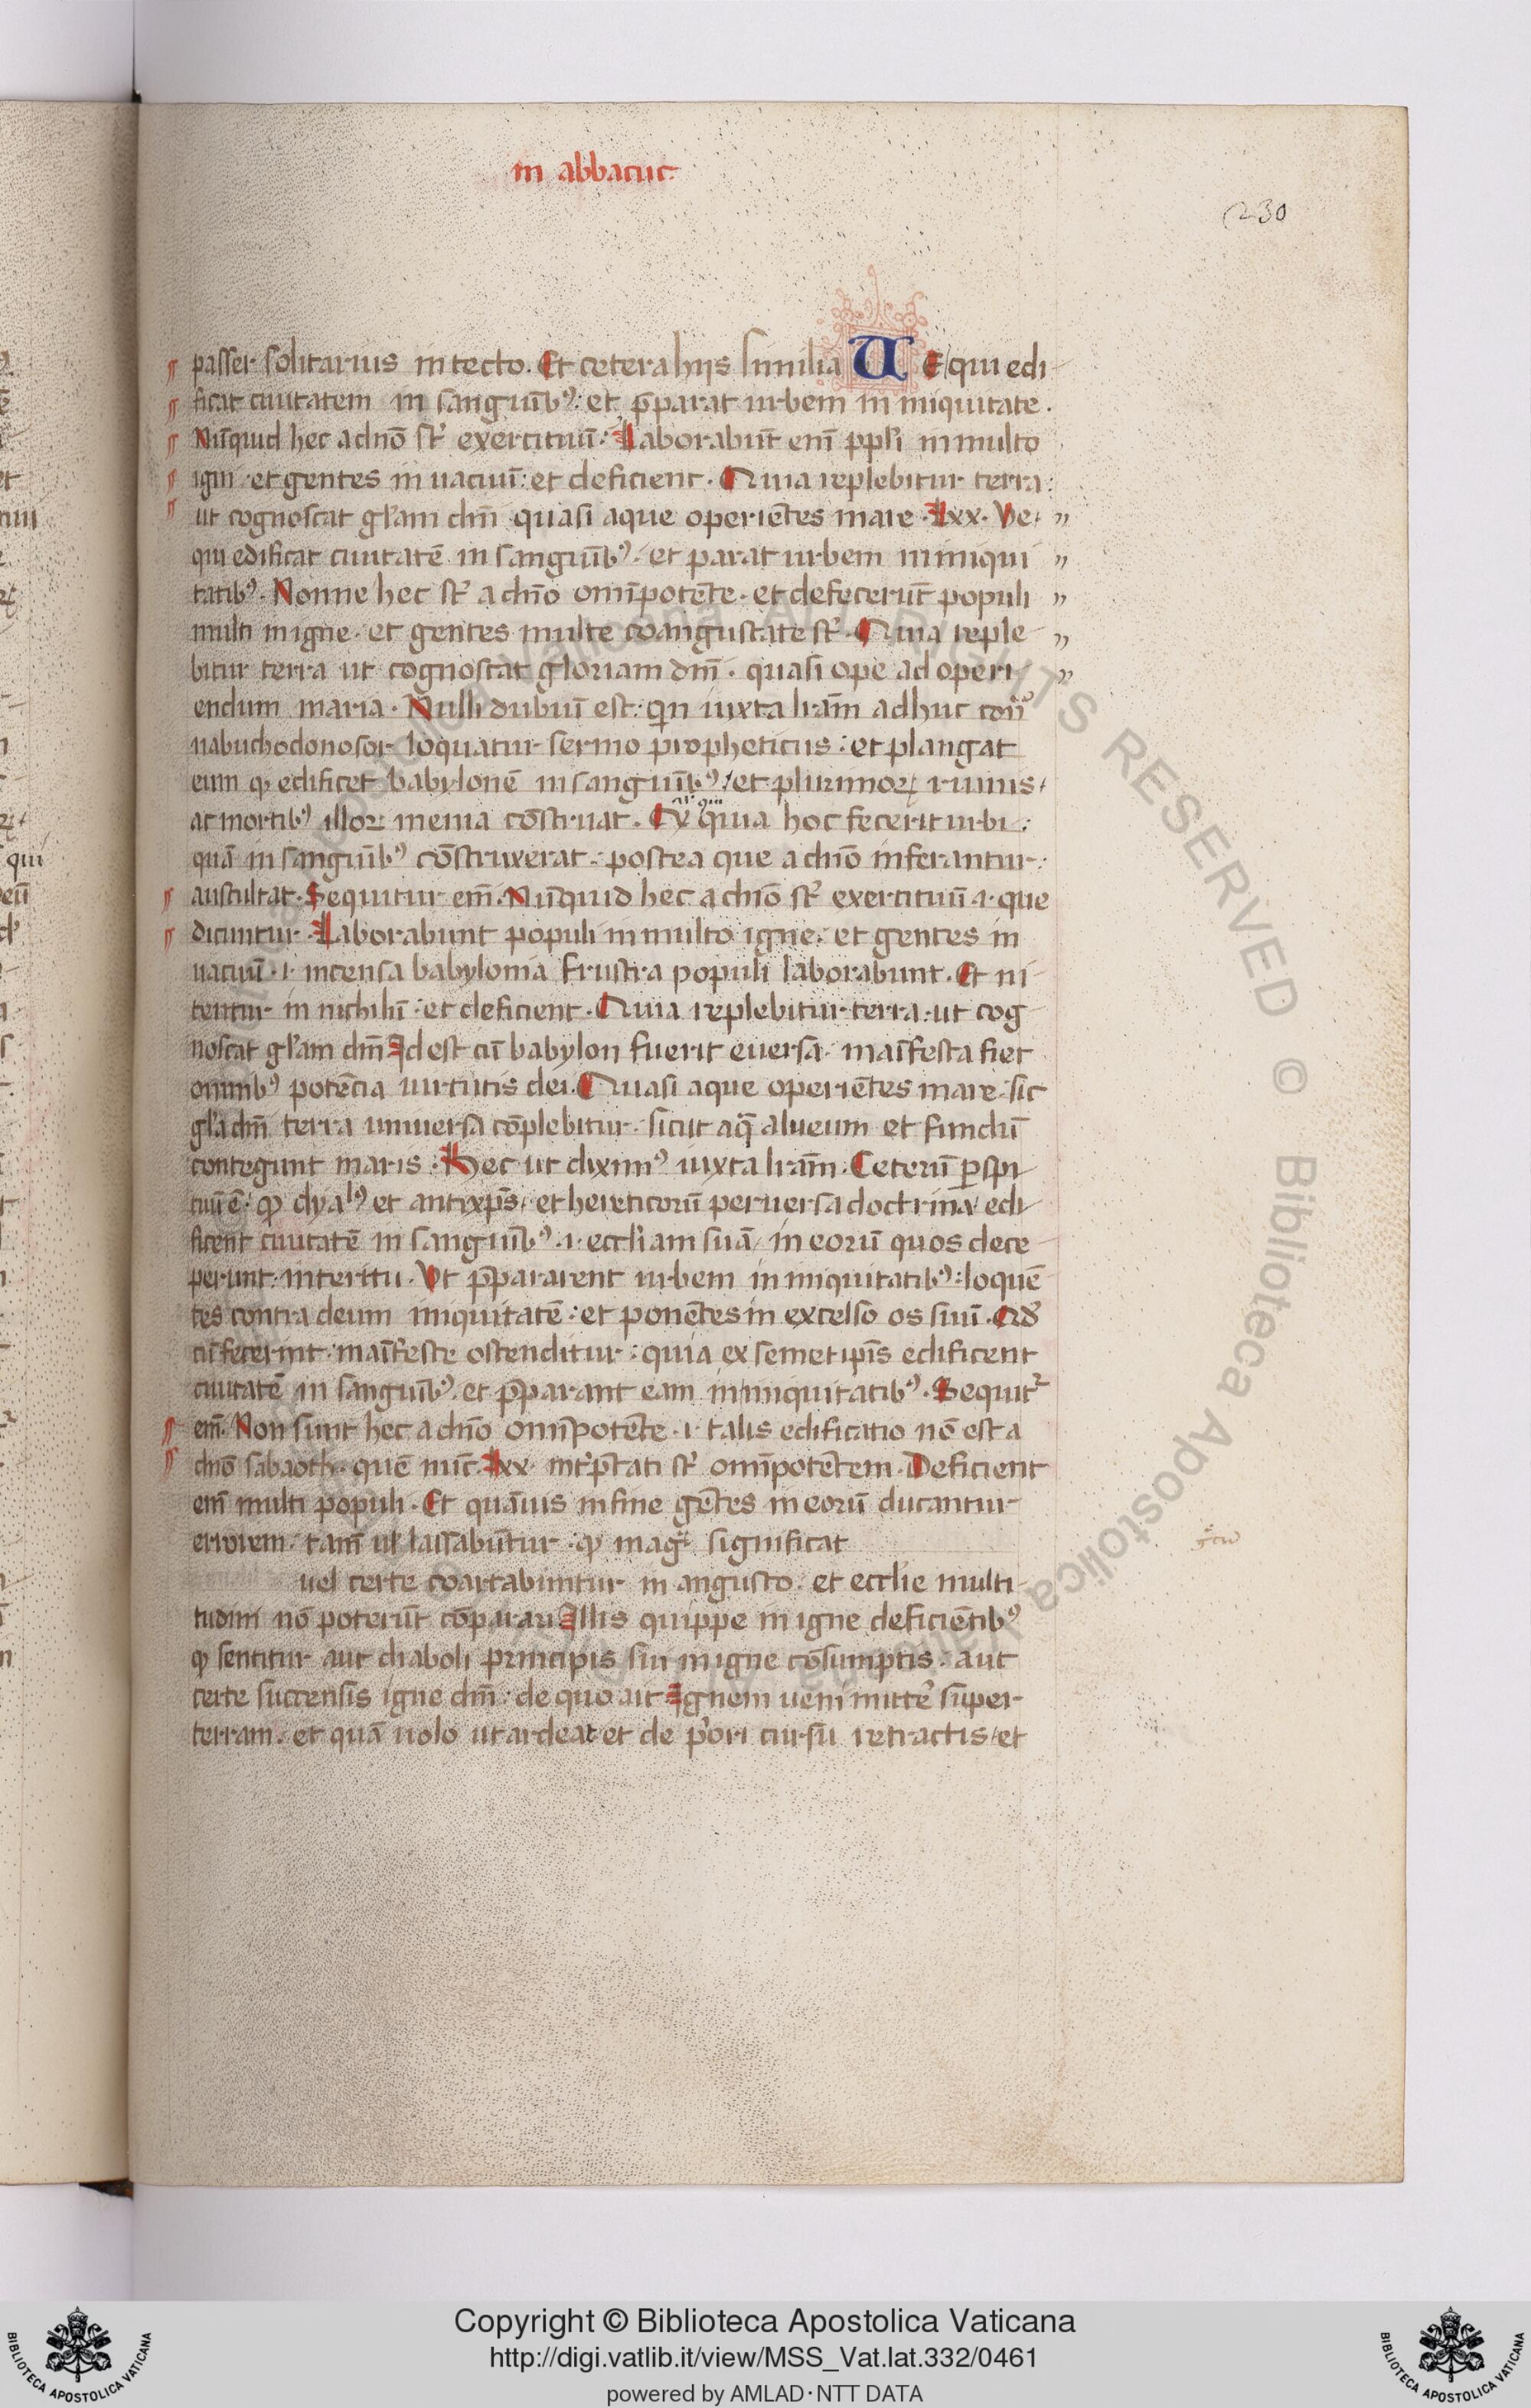 in abbacuc
230
passer solitarius in tecto. Et cetera hijs similia UE qui edi
ficat ciuitatem in sanguinibꝰ: et p̄parat urbem in iniquitate.
Nūquid hec a dn̄o st̄ exercituū: Laborabūt enī ppl'i in multo
igni et gentes in uacuū: et deficient. Quia replebitur terra:
ut cognoscat gl'am dn̄i quasi aque operiētes mare. Lxx. Ve
qui edificat ciuitatē in sanguīibꝰ et parat urbem in iniqui
tatibꝰ. Nonne hec st̄ a dn̄o om̄ipotēte. et defecerūt populi
multi in igne. et gentes multe coangustate st̄. Quia reple
bitur terra ut cognoscat gloriam dn̄i. quasi ope ad operi
endum maria. Nulli dubiū est: qn̄ iuxta lr̄am adhuc cont̄
nabuchodonosor loquatur sermo propheticus: et plangat
eum ꝙ edificet babylonē in sanguīibꝰ / et plurimoꝝ ruinis /
ac mortibꝰ illoꝝ menia cōstruat. Et quia hoc fecerit urbi:
quā in sanguīibꝰ cōstruxerat. postea que a dn̄o inferantur:
auscultat. Sequitur em̄. Nūquid hec a dn̄o st̄ exercituū .i. que
dicuntur. Laborabunt populi in multo igne. et gentes in
uacuū .i. incensa babylonia frustra populi laborabunt. Et ni
tentur in nichilū: et deficient. Quia replebitur terra: ut cog
noscat gl'am dn̄i Id est cū babylon fuerit euersa. maīfesta fiet
omnibꝰ potēcia uirtutis dei. Quasi aque operiētes mare. sic
gl'a dn̄i terra uniuersa cōplebitur. sicut aq̄ alueum et fundū
contegunt maris. Hec ut diximꝰ iuxta lr̄am. Ceterū ꝑspi
cuū ē. ꝙ dyal'ꝰ et antixp̄s. et hereticorū peruersa doctrina edi
ficent ciuitatē in sanguīibꝰ .i. eccl'iam suā / in eorū quos dece
perunt interitu. Vt p̄pararent urbem in iniquitatibꝰ: loquē
tes contra deum iniquitatē: et ponētes in excelso os suū. Qd'
cū fecerint. maīfeste ostenditur: quia ex semetip̄is edificent
ciuitatē in sanguīibꝰ. et p̄parant eam in iniquitatibꝰ. Sequit᷑
em̄. Non sunt hec a dn̄o om̄ipotēte .i. talis edificatio nō est a
dn̄o sabaoth. quē nūc Lxx int̄p̄tati st̄ om̄ipotētem. Deficient
em̄ multi populi. Et quāuis in fine gētes in eorū ducantur
errorem. tam̄ ul' lassabūtur. ꝙ mag̣ͥ significat
uel certe coartabuntur in angusto. et eccl'ie multi
tudini nō poterūt cōparari Illis quippe in igne deficiētibꝰ
ꝙ sentitur aut diaboli principis sui in igne cōsumptis. aut
certe succensis igne dn̄i. de quo ait Ignem ueni mitte᷑ super
terram. et quā uolo ut ardeat et de p'ori cursu retractis / et
Copyright © Biblioteca Apostolica Vaticana
http://digi.vatlib.it/view/MSS_Vat.lat.332/0461
powered by AMLAD·NTT DATA
BIBLIOTECA APOSTOLICA VATICANA
BIBLIOTECA APOSTOLICA VATICANA